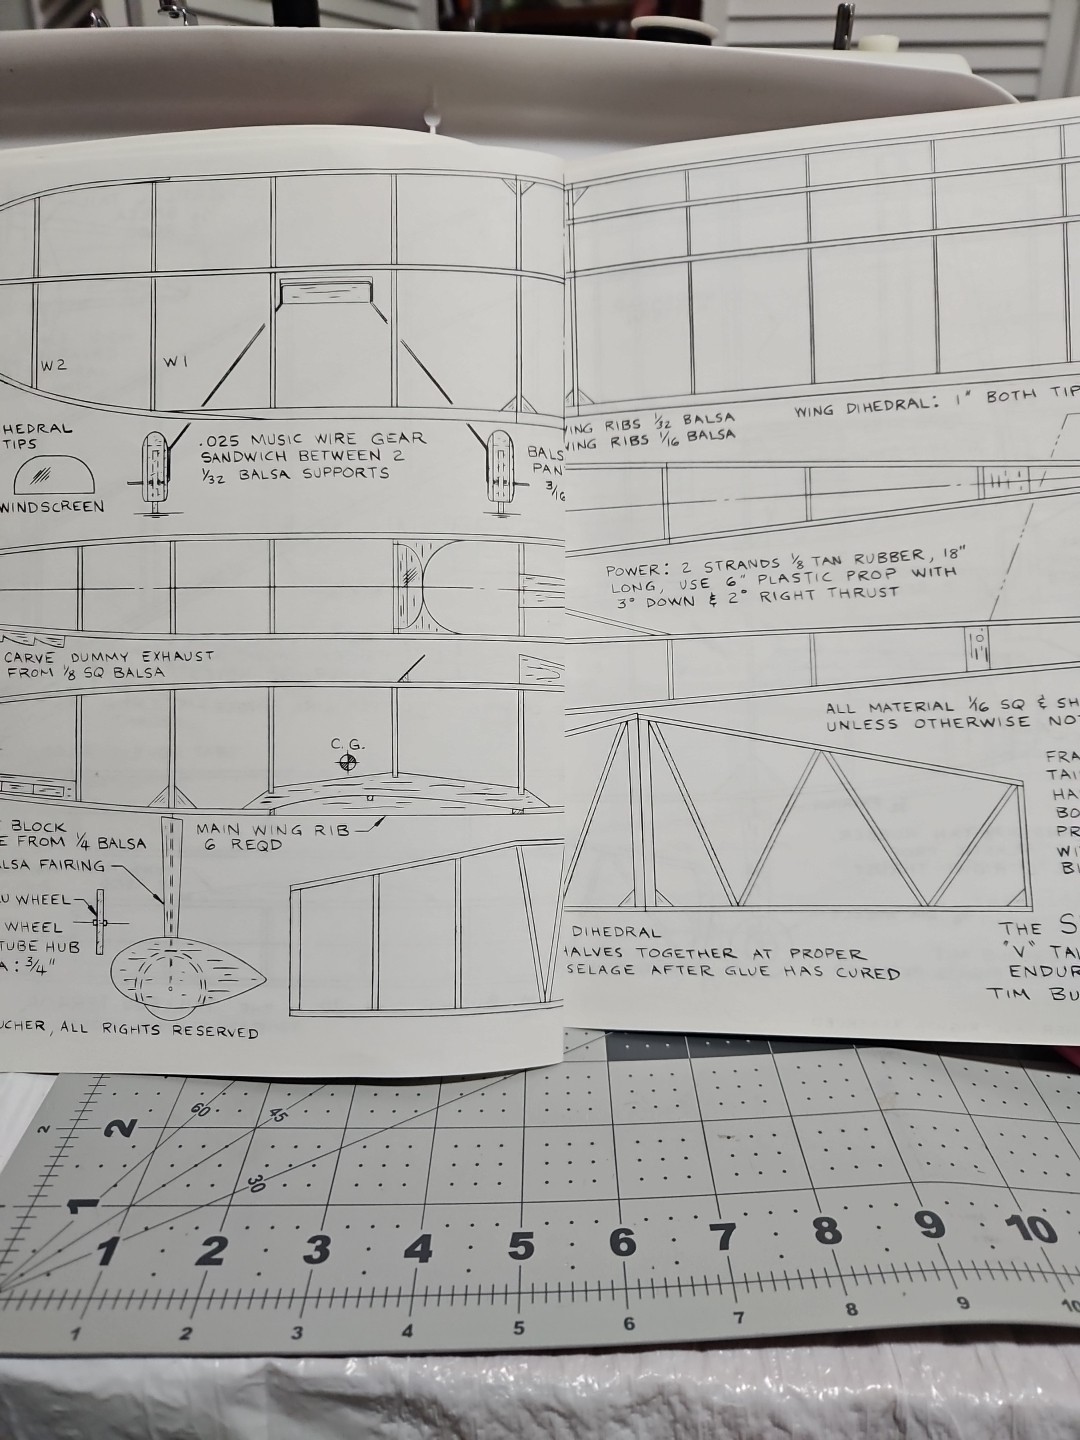 W2
W1
HEDRAL
TIPS
WINDSCREEN
.025 MUSIC WIRE GEAR
SANDWICH BETWEEN 2
1/32 BALSA SUPPORTS
BALS
PAN
3/16
WING RIBS 1/32 BALSA
WING RIBS 1/16 BALSA
WING DIHEDRAL: 1" BOTH TIP
POWER: 2 STRANDS 1/8 TAN RUBBER, 18"
LONG, USE 6" PLASTIC PROP WITH
3° DOWN & 2° RIGHT THRUST
CARVE DUMMY EXHAUST
FROM 1/8 SQ BALSA
ALL MATERIAL 1/16 SQ & SH
UNLESS OTHERWISE NOT
C.G.
BLOCK
E FROM 1/4 BALSA
MAIN WING RIB
6 REQD
LSA FAIRING
U WHEEL
WHEEL
TUBE HUB
A: 3/4"
FRA
TAI
HA
BO
PR
WI
B
DIHEDRAL
HALVES TOGETHER AT PROPER
SELAGE AFTER GLUE HAS CURED
THE S
"V" TAI
ENDUR
TIM BU
UCHER, ALL RIGHTS RESERVED
60
45
30
2
2
1
1 2 3 4 5 6 7 8 9 10
1 2 3 4 5 6 7 8 9 10